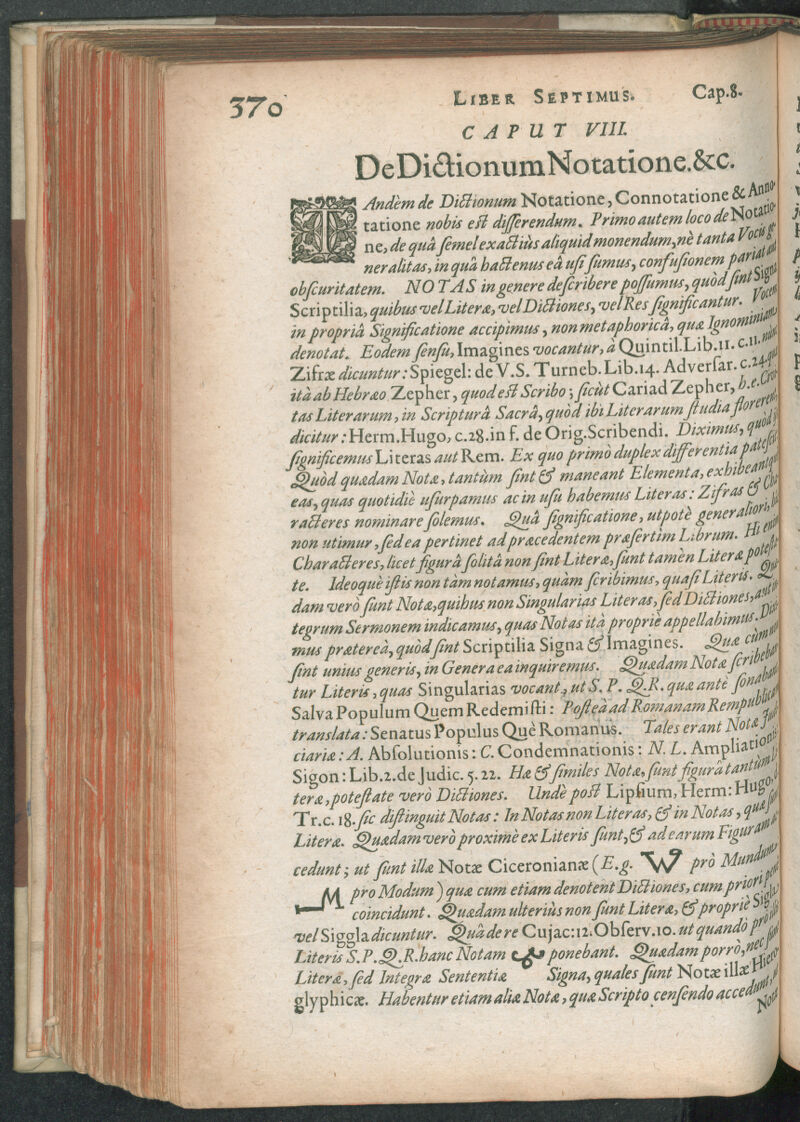 370 LIBER SEPTIMUS. Cap.8.
CAPUT VIII.
De Dictionum Notatione. &c.
TAndèm de Dictionum Notatione, Connotatione & Anno-
tatione nobis est differendum. Primo autem loco de Notatio-
ne, de quâ semel exactiùs aliquid monendum, nè tanta Vocis ge-
neralitas, in quâ hactenus eâ usi sumus, confusionem pariat aut
obscuritatem. NOTAS in genere describere possumus, quòd sint Signa
Scriptilia, quibus vel Literæ, vel Dictiones, vel Res significantur. Vocem
in propriâ Significatione accipimus, non metaphoricâ, quæ Ignominiam
denotat. Eodem sensu, Imagines vocantur, à Quintil. Lib.11. c.11. nunc
Zifræ dicuntur: Spiegel: de V.S. Turneb. Lib.14. Adversar. c.24. quæ
ità ab Hebræo Zepher, quod est Scribo; sicùt Cariad Zepher, h.e. Civi-
tas Literarum, in Scripturâ Sacrâ, quòd ibi Literarum studia florerent,
dicitur: Herm. Hugo, c.28. in f. de Orig. Scribendi. Diximus, quòd
significemus Literas aut Rem. Ex quo primò duplex differentia patescit.
Quòd quædam Notæ, tantùm sint & maneant Elementa, exhibeantque
eas, quas quotidiè usurpamus ac in usu habemus Literas: Zifras & Cha-
racteres nominare solemus. Quâ significatione, utpotè generaliori,
non utimur, sed ea pertinet ad præcedentem præsertim Librum. Hi enim
Characteres, licet figurâ solitâ non sint Literæ, sunt tamèn Literæ potesta-
te. Ideoquè istis non tàm notamus, quàm scribimus, quasi Literis. Quæ-
dam verò sunt Notæ, quibus non Singularias Literas, sed Dictiones, aut in-
tegrum Sermonem indicamus, quas Notas ità propriè appellabimus. Dixi-
mus prætereà, quòd sint Scriptilia Signa & Imagines. Quæ cùm non
sint unius generis, in Genera ea inquiremus. Quædam Notæ scribeban-
tur Literis, quas Singularias vocant, ut S. P. Q. R. quæ antè sonabant
Salva Populum Quem Redemisti: Posteà ad Romanam Rempublicam
translata: Senatus Populus Què Romanus. Tales erant Notæ Judi-
ciariæ: A. Absolutionis: C. Condemnationis: N. L. Ampliationis,
Sigon: Lib.2. de Judic. 5.22. Hæ & similes Notæ, sunt figurâ tantùm Li-
teræ, potestate verò Dictiones. Undè post Lipsium, Herm: Hugo,
Tr. c. 18. sic distinguit Notas: In Notas non Literas, & in Notas, quæ sunt
Literæ. Quædam verò proximè ex Literis sunt, & ad earum Figuram ac-
cedunt; ut sunt illæ Notæ Ciceronianæ (E.g. W prò Mundum
M pro Modum) quæ cum etiam denotent Dictiones, cum priori penè
coincidunt. Quædam ulteriùs non sunt Literæ, & propriè Sigla,
vel Siggla dicuntur. Quâ de re Cujac: 12. Observ. 10. ut quandò prò illis
Literis S.P.Q.R. hanc Notam ponebant. Quædam porrò, nec sunt
Literæ, sed Integræ Sententiæ Signa, quales sunt Notæ illæ Hiero-
glyphicæ. Habentur etiam aliæ Notæ, quæ Scripto censendo accedunt,
Notæ